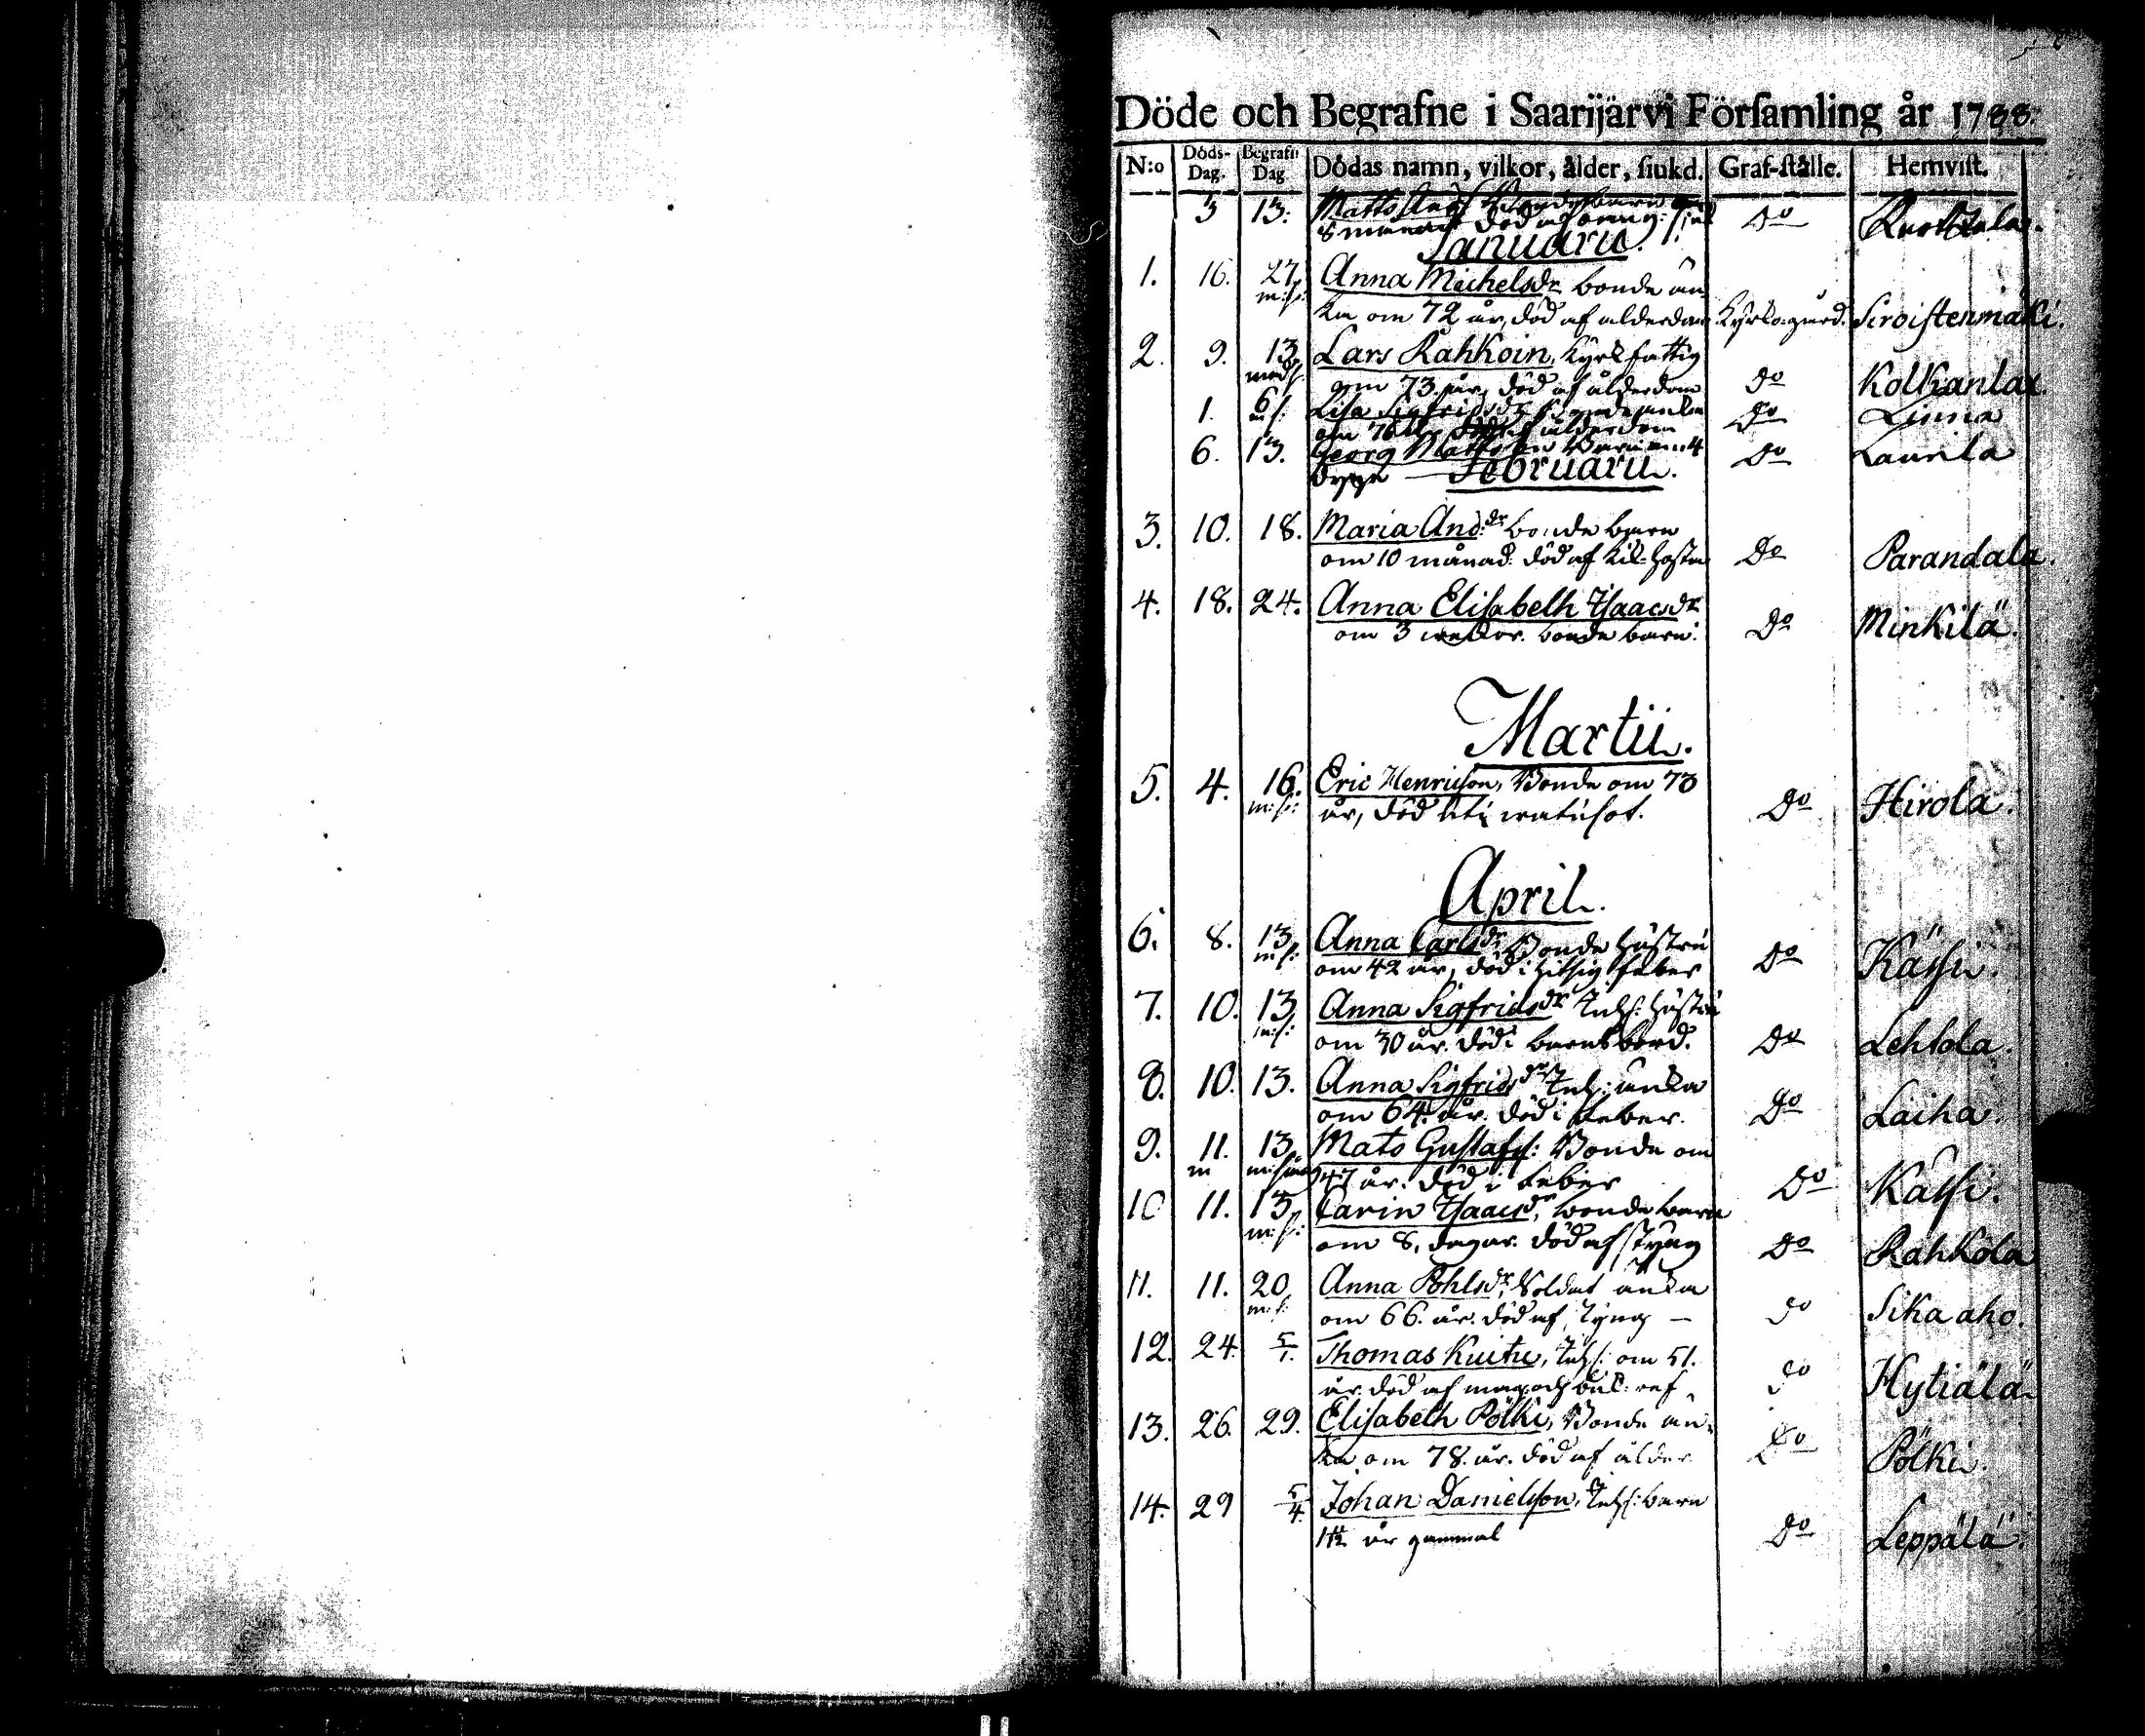 Döde och Begrafne i Saarijärvi Församling år 1788.
N:o Döds-Dag. Begrafn Dag Dödas namn, vilkor, ålder, siukd. Graf-ställe. Hemvist.
3 13. Matts
8 månad död af Do
Januarii.
1. 16. 27. Anna Michelsdr bonde än-
m:s: ka om 72 år, död af ålderdom Kyrkogård. Sirvistenmäki.
2. 9. 13. Lars Rahkoin, Kyrk fattig
med s: om 73 år, död af ålderdom Do Kolkanlax.
1. 6 Lisa Sigfridsdr Bonde enka Do Linna
m:s: om 76 år död af ålderdom
6. 13. Georg Matts Do Laurila
Februarii.
3. 10. 18. Maria And:dr bonde barn
om 10 månad: död af Kik-hosta Do Parandala.
4. 18. 24. Anna Elisabeth Isaacsdr
om 3 weckor. bonde barn. Do Minkilä.
Martii.
5. 4. 16. Eric Henricson, Bonde om 73
m:s: år, död uti watusot. Do Hirola.
April.
6. 8. 13. Anna Carlsdr Bonde hustru
m:s: om 42 år, död i hitsig feber Do Kässi.
7. 10. 13. Anna Sigfridsdr Inhs: hustru
m:s: om 30 år. död i barnsbörd. Do Lehtola.
8. 10. 13. Anna Sigfridsdr Inhs: änka
om 64. år. död i feber. Do Laiha.
9. 11. 13. Mats Gustafss: Bonde om
47 år. död i feber Do Kässi.
10 11. 13. Carin Isaacsdr, bonde barn
m:s: om 8. dagar. död af styng Do Rahkola
11. 11. 20. Anna Pohlsdr, Soldat änka
m:s: om 66. år. död af styng — Do Sika aho.
12. 24. 5/1. Thomas Kuitu, Inhs: om 51.
år död af mag och buk: ref. Do Hytiälä
13. 26. 29. Elisabeth Pölki, Bonde än-
ka om 78. år. död af ålder Do Pölki.
14. 29 5/4. Johan Danielsson, Inhs: barn
1 1/2 år gammal Do Leppälä.